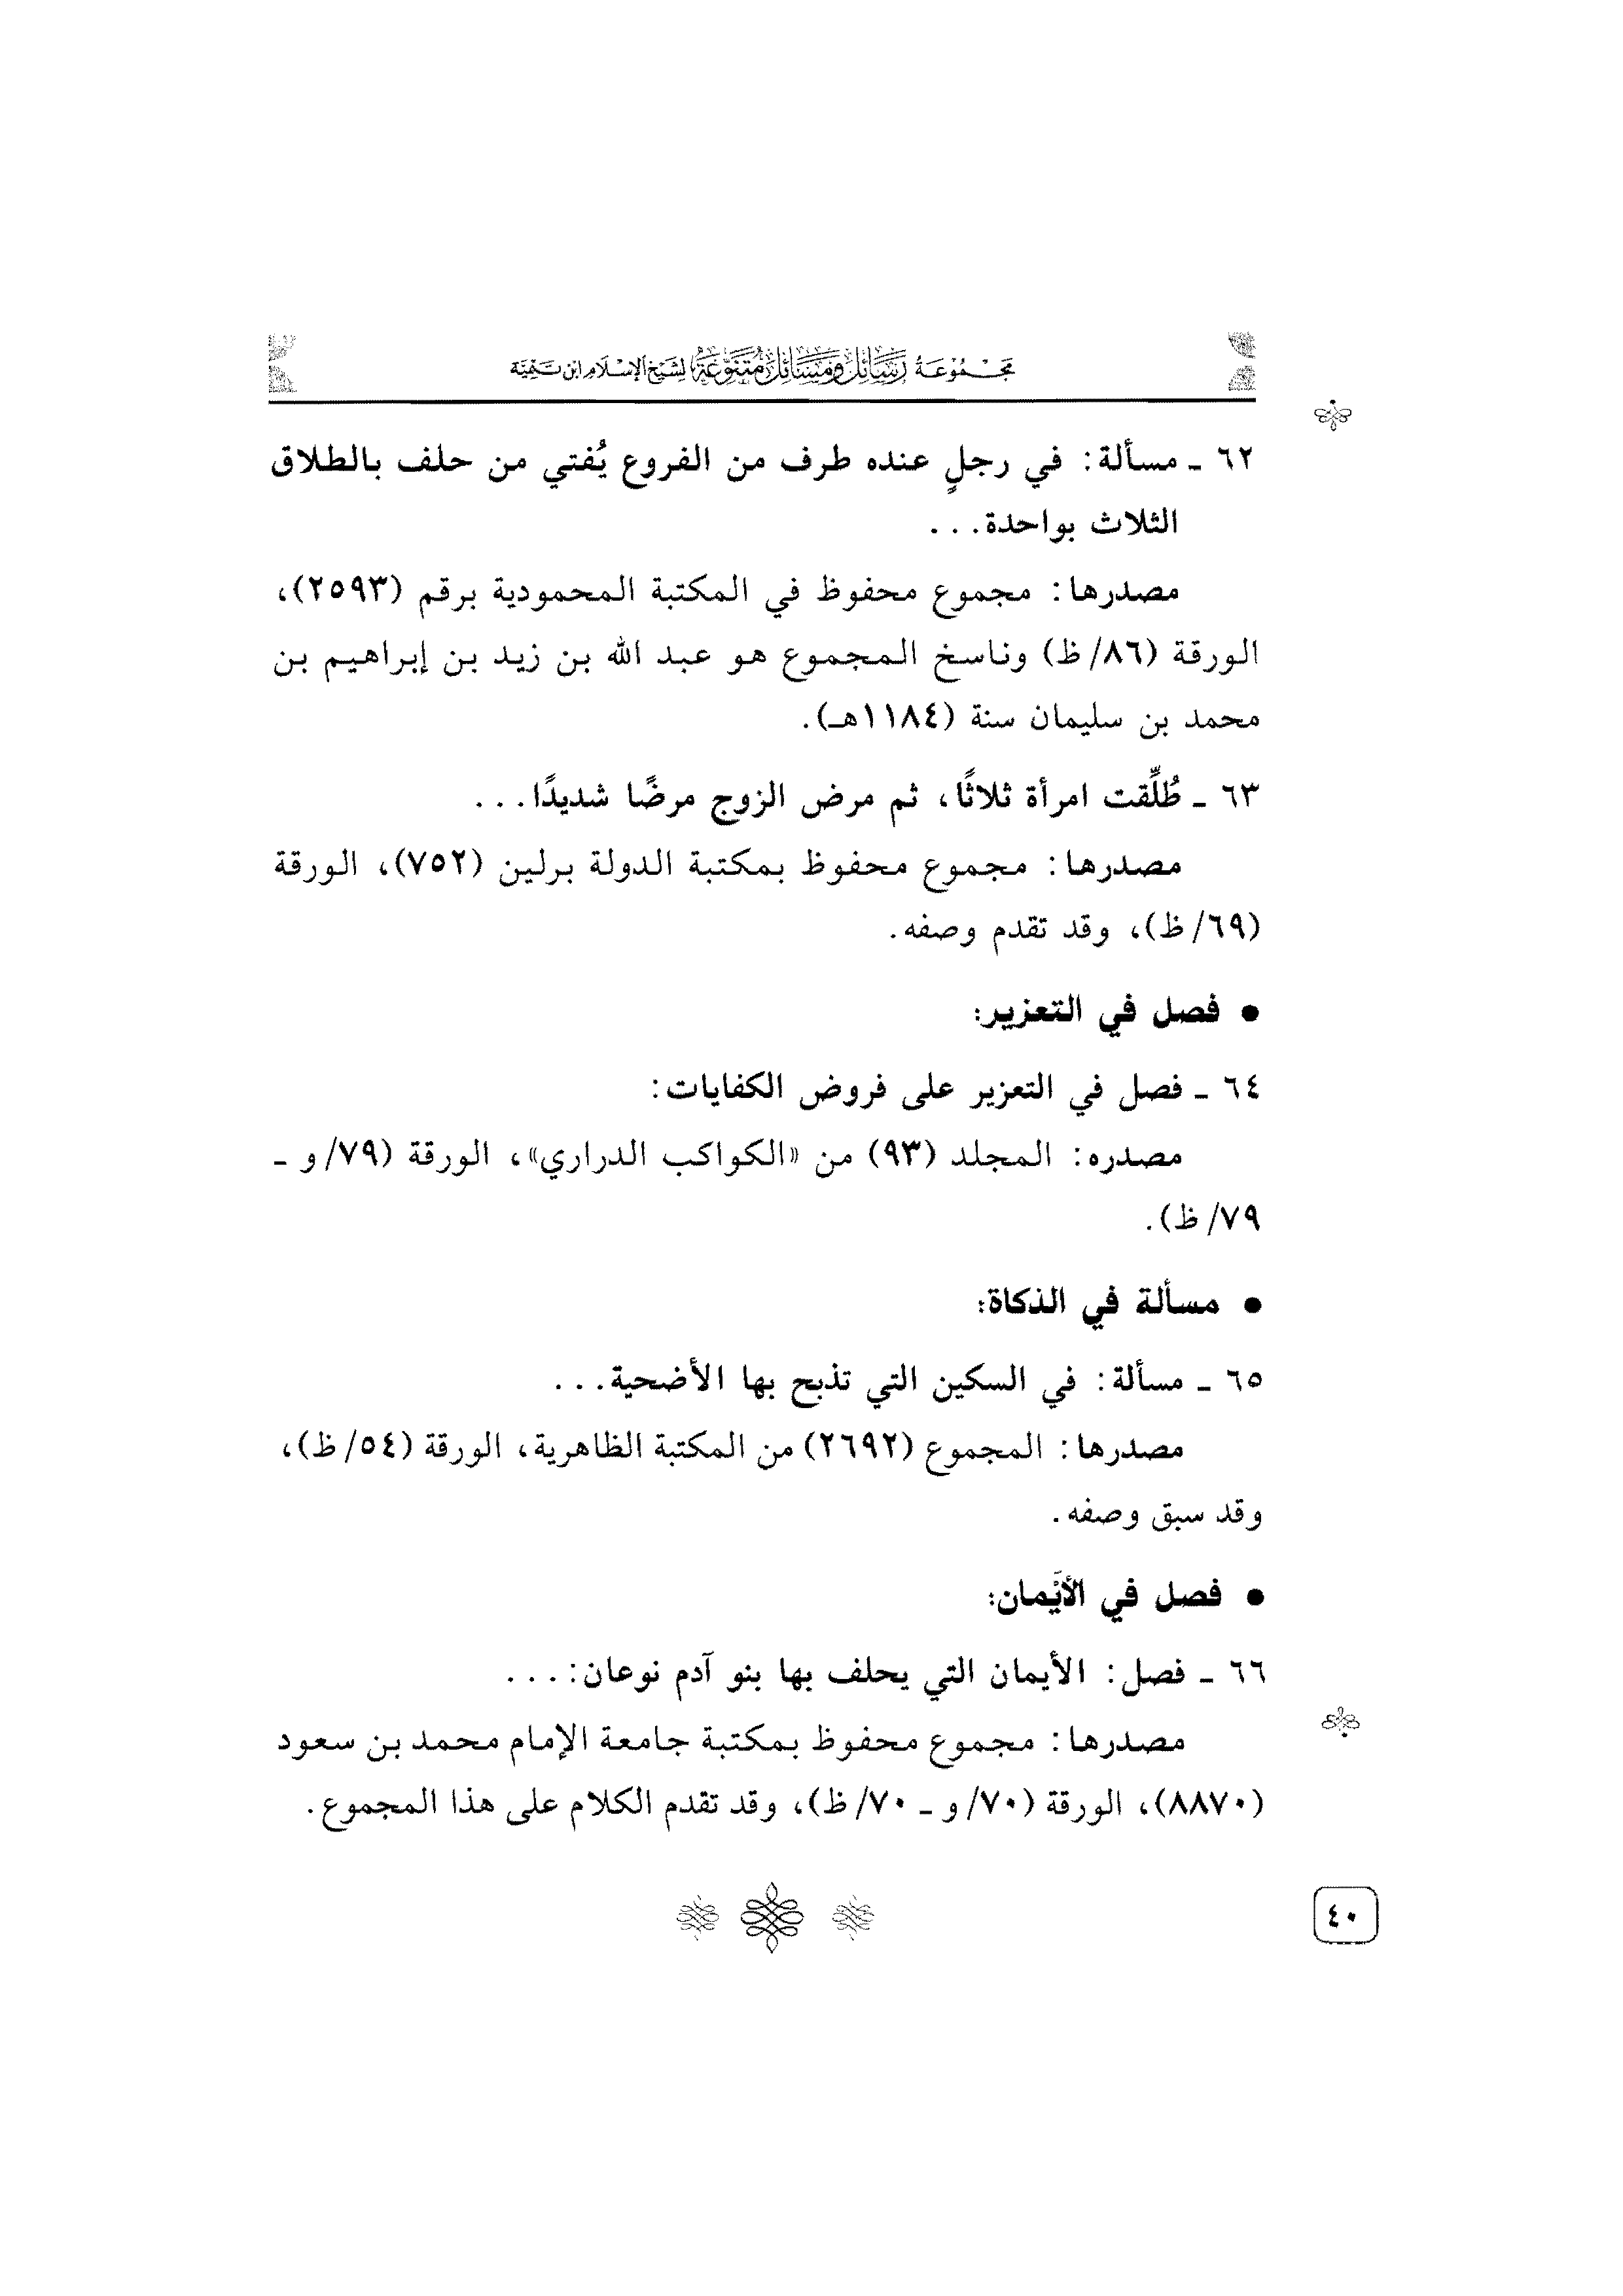 مجموعة رسائل ومسائل متنوعة لشيخ الإسلام ابن تيمية
٦٢ ـ مسألة: في رجلٍ عنده طرف من الفروع يُفتي من حلف بالطلاق
الثلاث بواحدة...
مصدرها: مجموع محفوظ في المكتبة المحمودية برقم (٢٥٩٣)،
الورقة (٨٦/ ظ) وناسخ المجموع هو عبد الله بن زيد بن إبراهيم بن
محمد بن سليمان سنة (١١٨٤هـ).
٦٣ ـ طُلِّقت امرأة ثلاثًا، ثم مرض الزوج مرضًا شديدًا...
مصدرها: مجموع محفوظ بمكتبة الدولة برلين (٧٥٢)، الورقة
(٦٩/ ظ)، وقد تقدم وصفه.
● فصل في التعزير:
٦٤ ـ فصل في التعزير على فروض الكفايات:
مصدره: المجلد (٩٣) من «الكواكب الدراري»، الورقة (٧٩/ و ـ
٧٩/ ظ).
● مسألة في الذكاة:
٦٥ ـ مسألة: في السكين التي تذبح بها الأضحية...
مصدرها: المجموع (٢٦٩٢) من المكتبة الظاهرية، الورقة (٥٤/ ظ)،
وقد سبق وصفه.
● فصل في الأَيْمان:
٦٦ ـ فصل: الأيمان التي يحلف بها بنو آدم نوعان:...
مصدرها: مجموع محفوظ بمكتبة جامعة الإمام محمد بن سعود
(٨٨٧٠)، الورقة (٧٠/ و ـ ٧٠/ ظ)، وقد تقدم الكلام على هذا المجموع.
٤٠